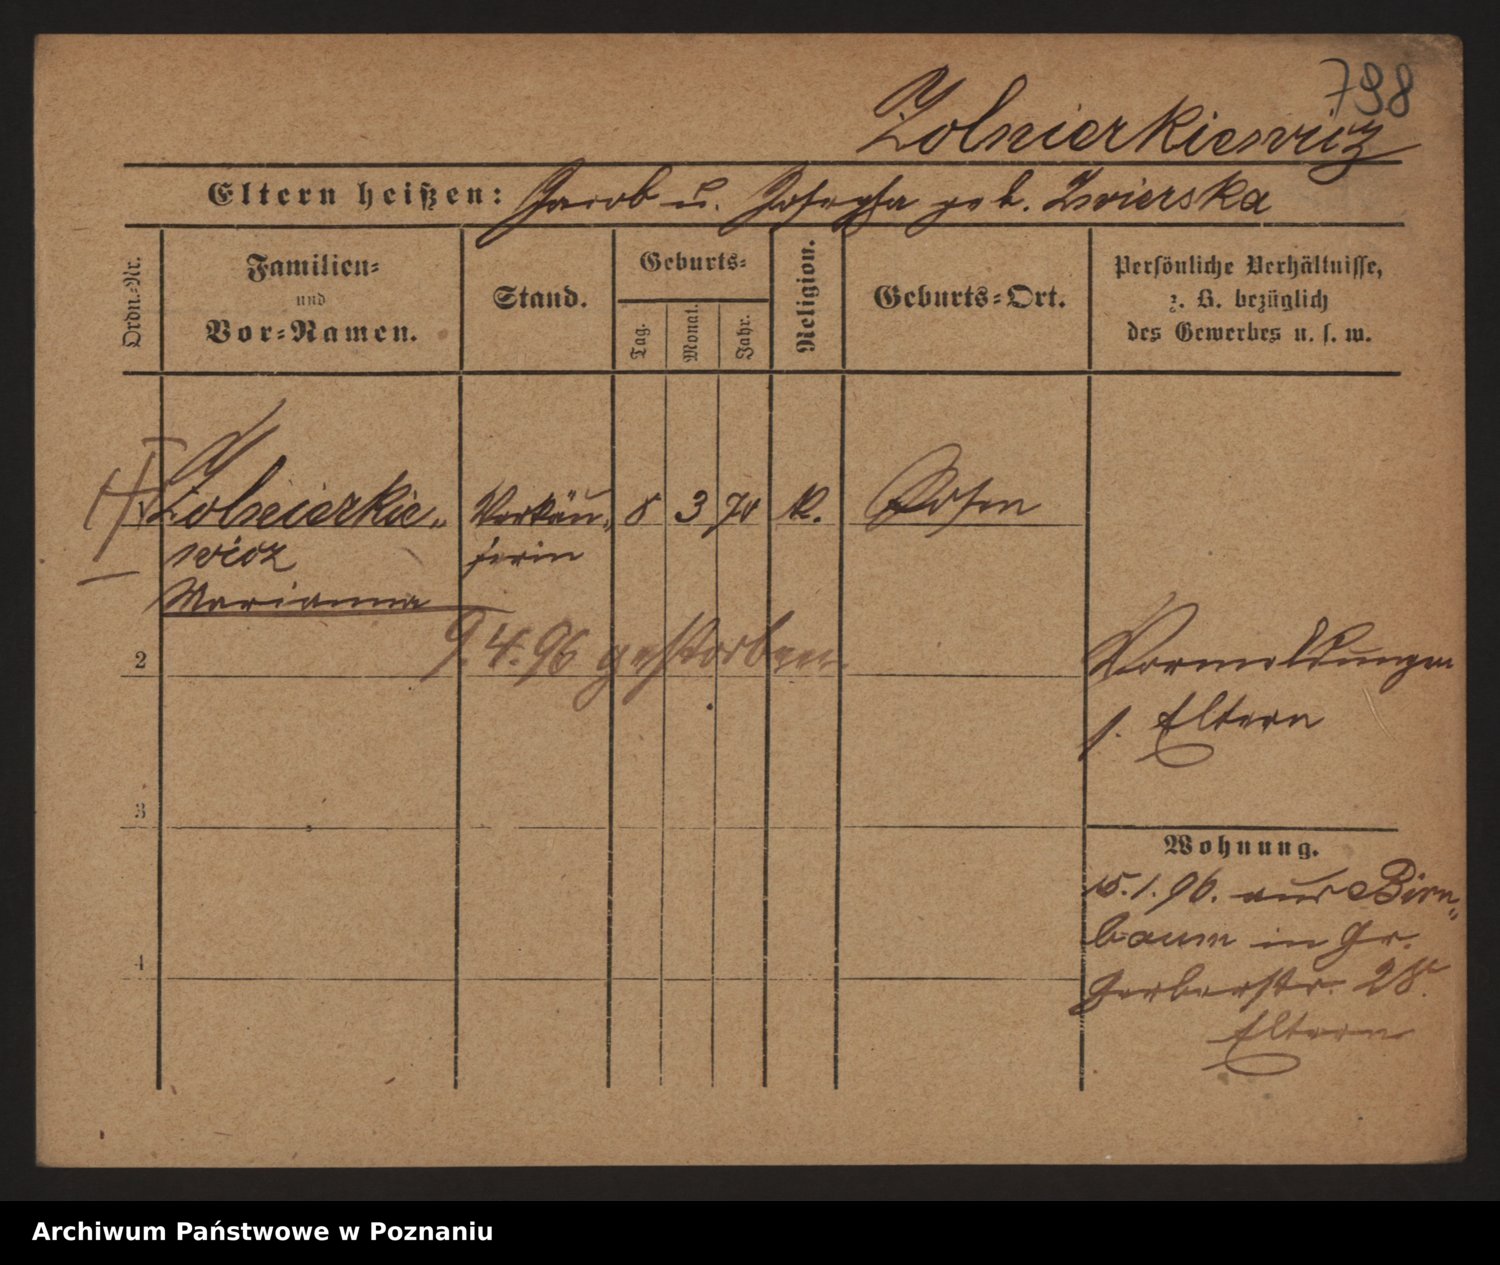 798
Zolnierkiewicz
Eltern heißen: Jacob u. Josepha geb. Zwierska
Ordn.-Nr.
Familien-
und
Vor-Namen.
Stand.
Geburts-
Tag.
Monat.
Jahr.
Religion.
Geburts-Ort.
Persönliche Verhältnisse,
z. B. bezüglich
des Gewerbes u. s. w.
Zolnierkie- Verkäu- 8 3 70 K. Posen
wicz ferin
Marianna
2 9.4.96 gestorben.
Vormeldungen
s. Eltern
3
Wohnung.
15.1.96. aus Birn-
baum in Gr.
4
Gerberstr. 28.
Eltern
Archiwum Państwowe w Poznaniu